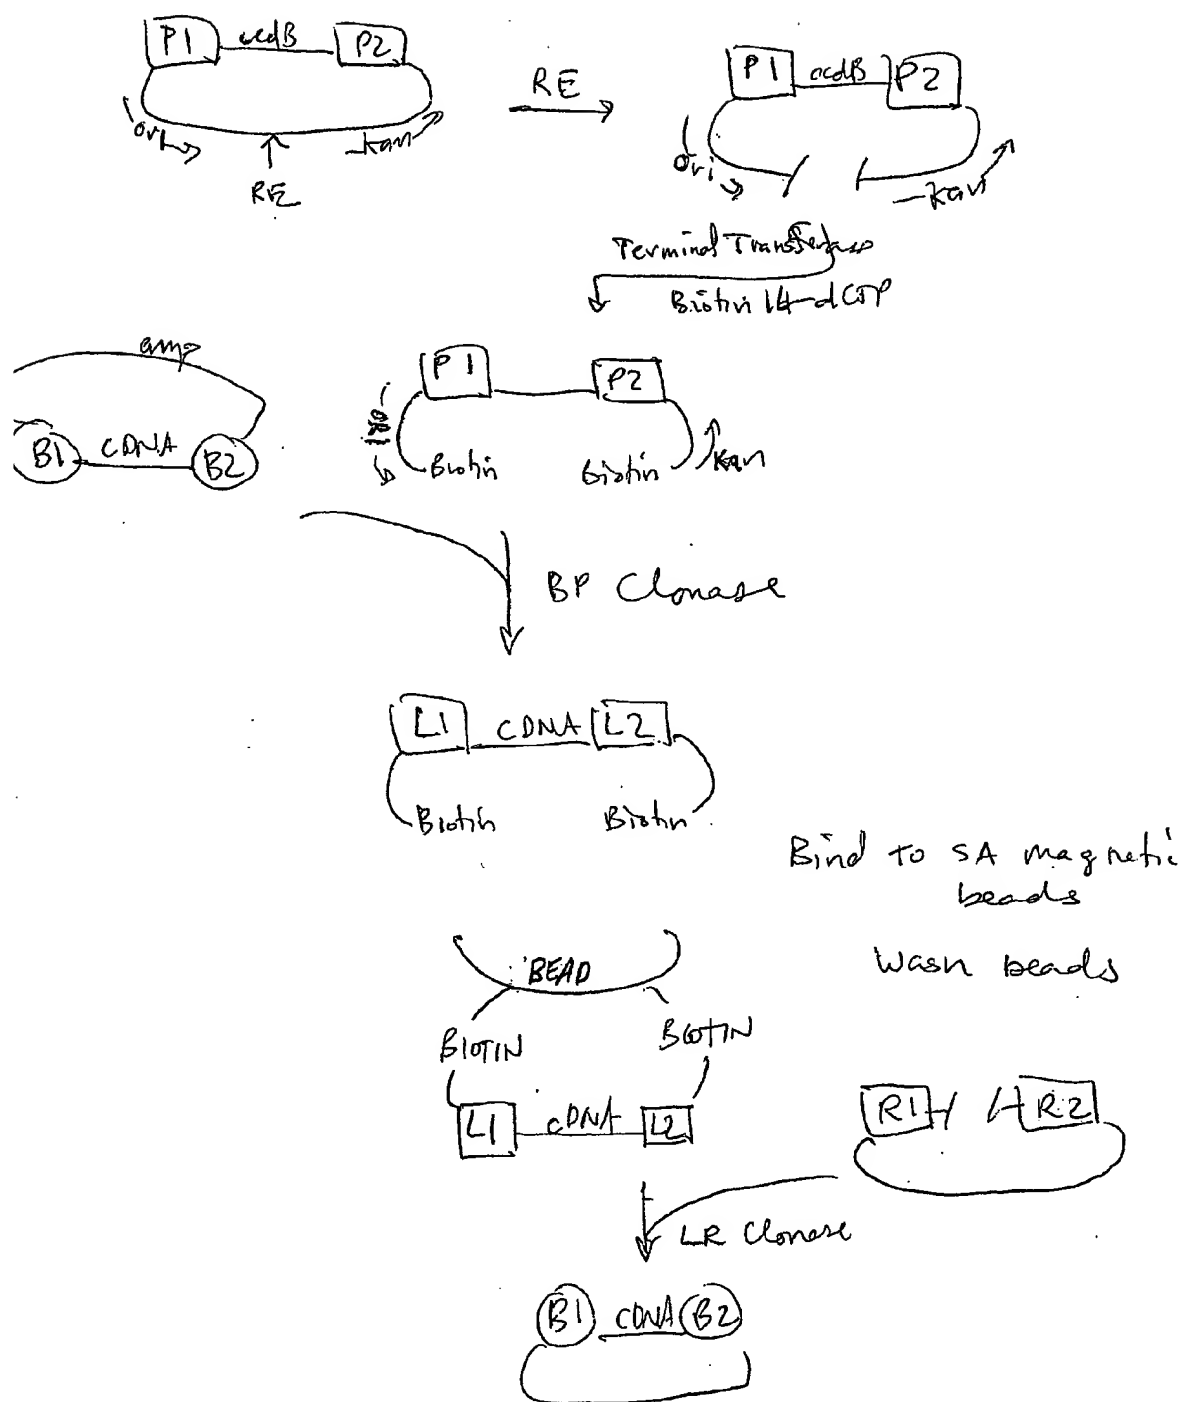 P1 ccdB P2
ori kan
RE
RE
P1 ccdB P2
ori kan
Terminal Transferase
Biotin 14-dCTP
amp
B1 cDNA B2
P1 P2
ORI Biotin Biotin Kan
BP Clonase
L1 cDNA L2
Biotin Biotin
Bind to SA magnetic
beads
Wash beads
BEAD
BIOTIN BIOTIN
L1 cDNA L2
R1 R2
LR Clonase
B1 cDNA B2